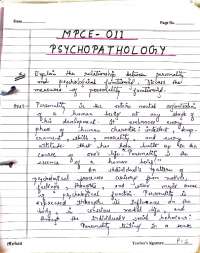 Date
Page No.
MPCE-011
PSYCHOPATHOLOGY
Explain the relationship between personality
and psychological functional. Discuss the
measures of personality functional.
Ans:- Personality is the entire mental organisation
of a human being at any stage of
his development. It embraces every
phase of human character: intellect, temp-
erament, skill, morality and every
attitude that has been built up in the
course of one's life. Personality is the
essence of a human being.
An individual's pattern of
psychological processes arising from motives,
feelings, thoughts, and other major areas
of psychological function. Personality is
expressed through its influences on the
body, in conscious mental life, and
through the individual's social behaviour.
Personality testing is a
Teacher's Signature
P-2